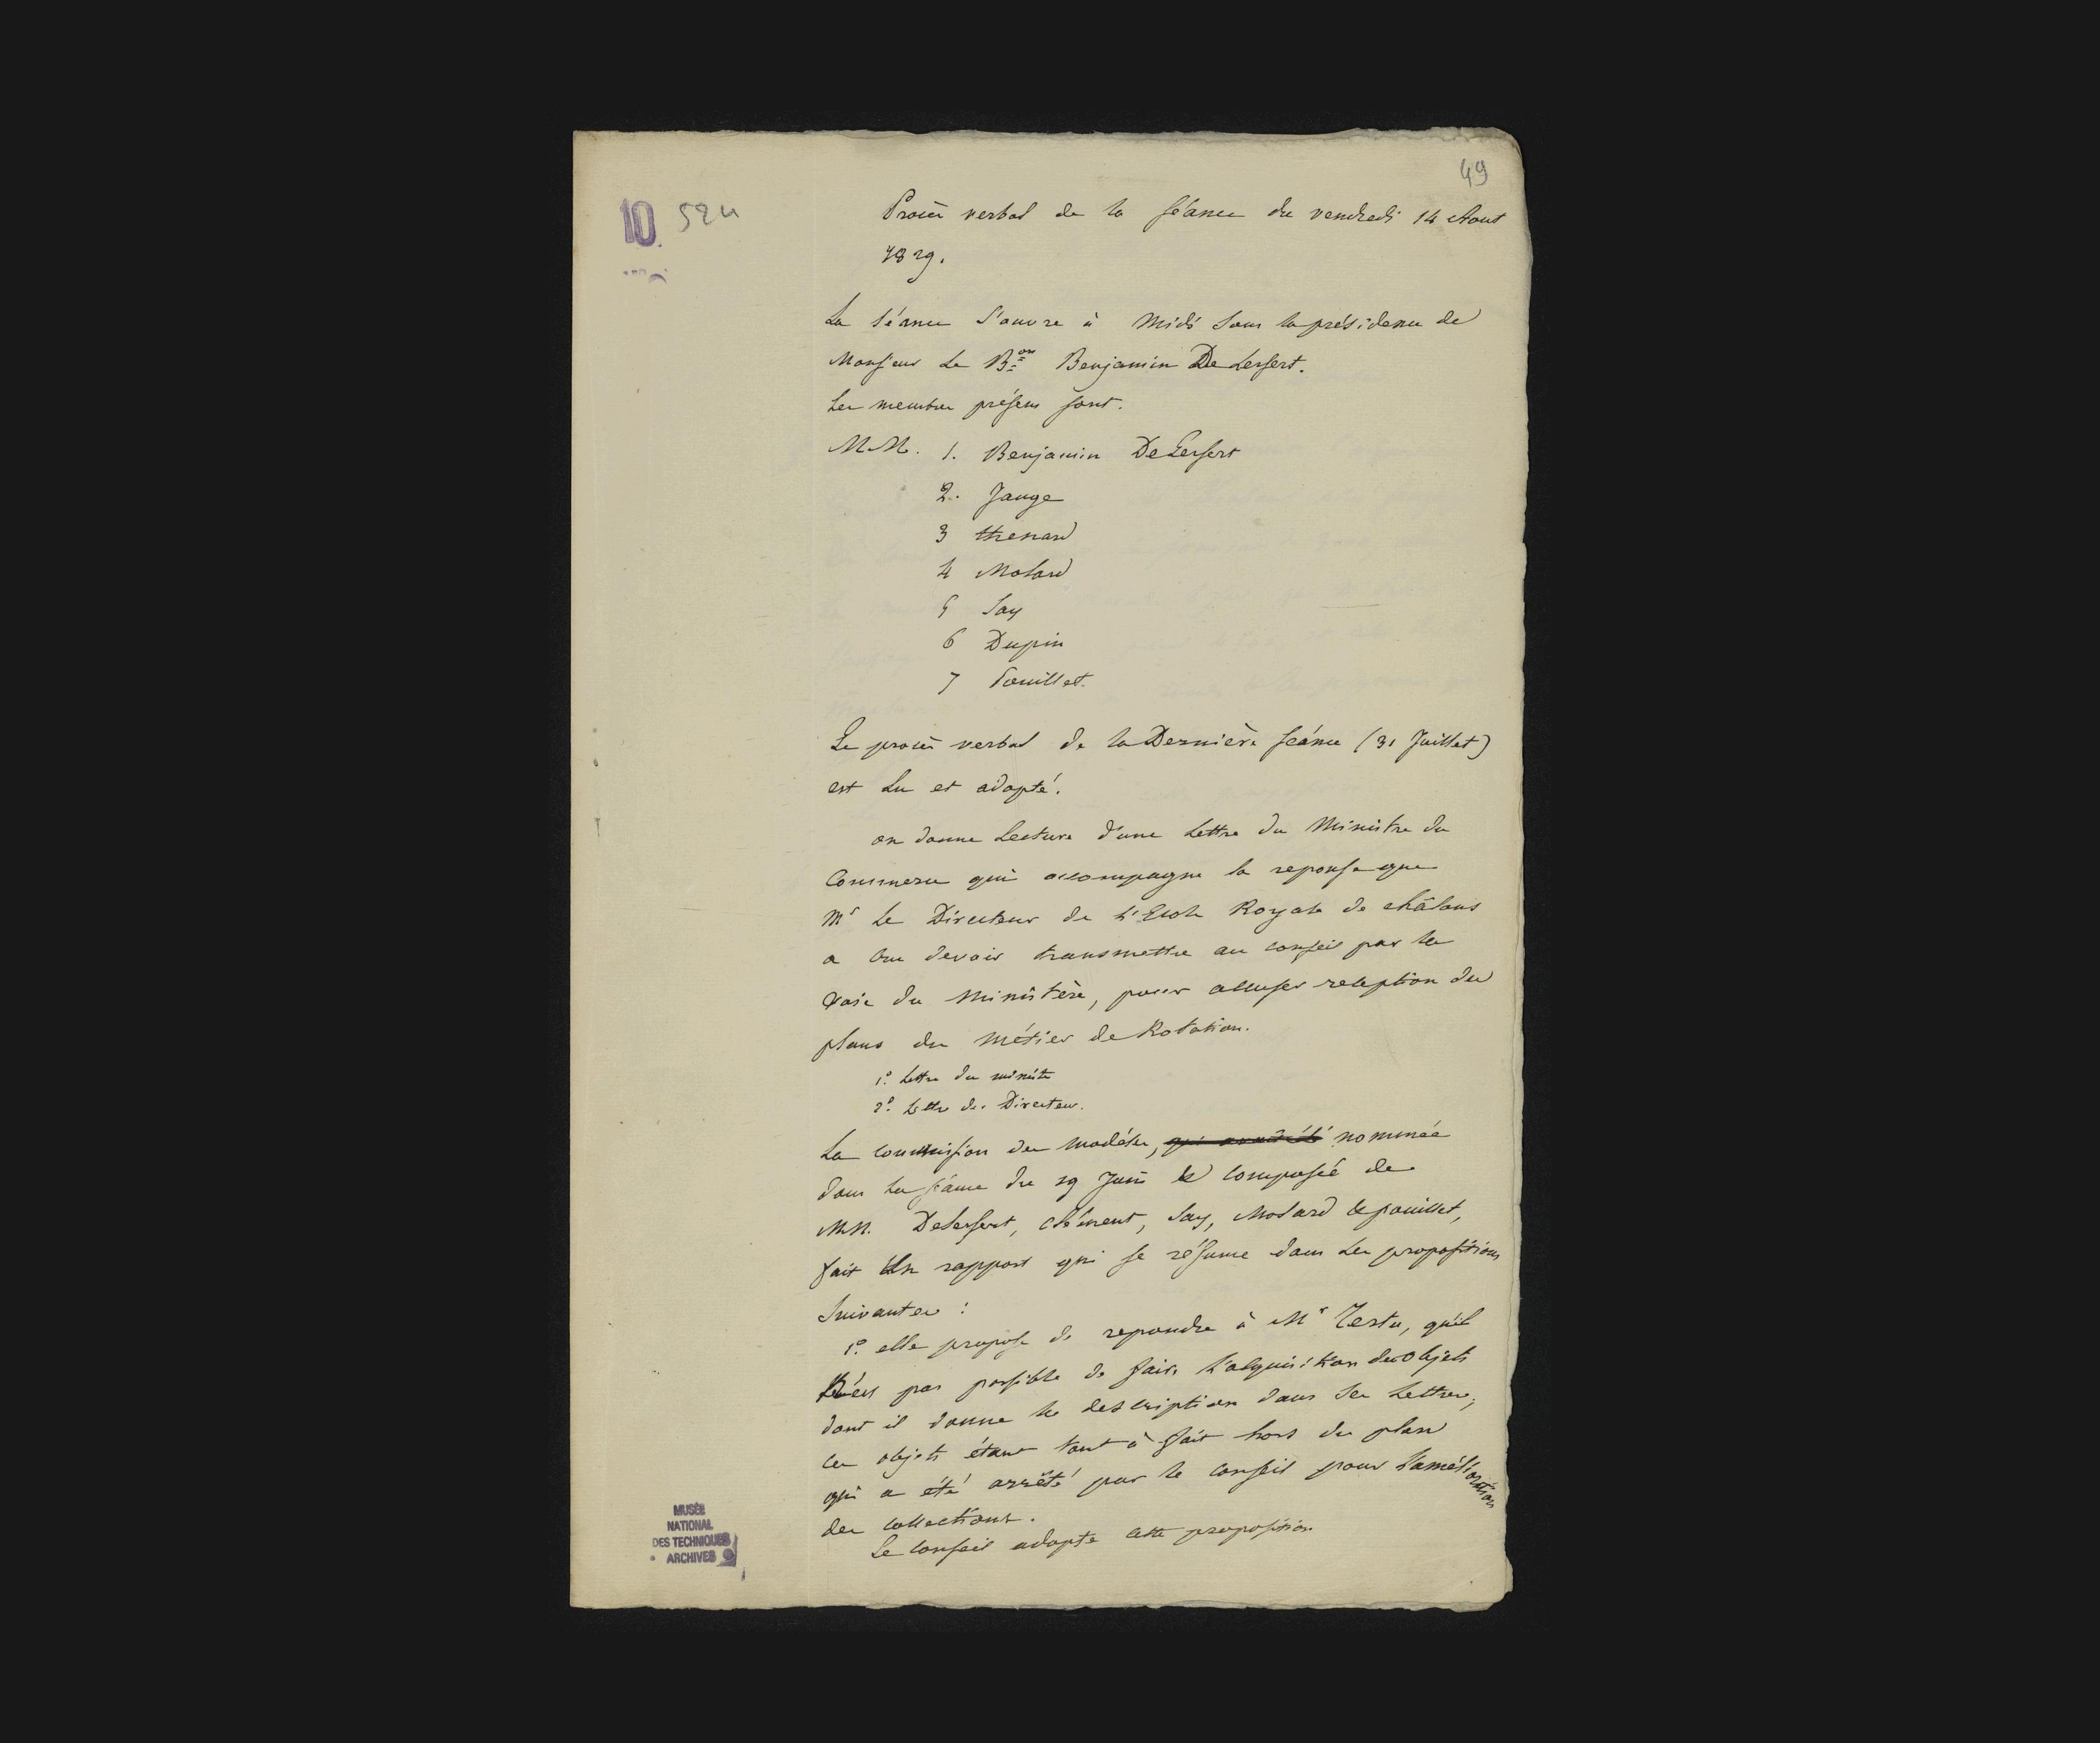 49
10. 524
Procès verbal de la séance du vendredi 14 Aout
1829.
La séance s'ouvre à Midi sous la présidence de
Monsieur Le Bon Benjamin De Lessert.
Les membres présens sont.
M.M. 1. Benjamin De Lessert
2. Jauge
3 thenard
4 Molard
5 Say
6 Dupin
7 Pouillet.
Le procès verbal de la Dernière séance (31 Juillet)
est Lu et adopté.
on donne Lecture d'une Lettre du Ministre du
Commerce qui accompagne la reponse que
Mr Le Directeur de L'Ecole Royale de châlons
a cru devoir transmettre au conseil par la
voie du Ministère, pour accuser reception des
plans du Métier de Rotation.
1º. Lettre du ministre
2º. Lettre du Directeur.
La commission des modèles, qui avait été nommée
dans la séance du 19 Juin & composée de
MM. Delessert, Clément, Say, Molard & pouillet,
fait Un rapport qui se résume dans les propositions
Suivantes :
1º. elle propose de repondre à Mr Testu, qu'il
N'est pas possible de faire L'acquisition des objets
dont il donne la description dans ses Lettres,
ces objets étant tout à fait hors du plan
qui a été arrêté par le conseil pour L'amélioration
des collections.
Le Conseil adopte cette proposition
MUSÉE
NATIONAL
DES TECHNIQUES
ARCHIVES